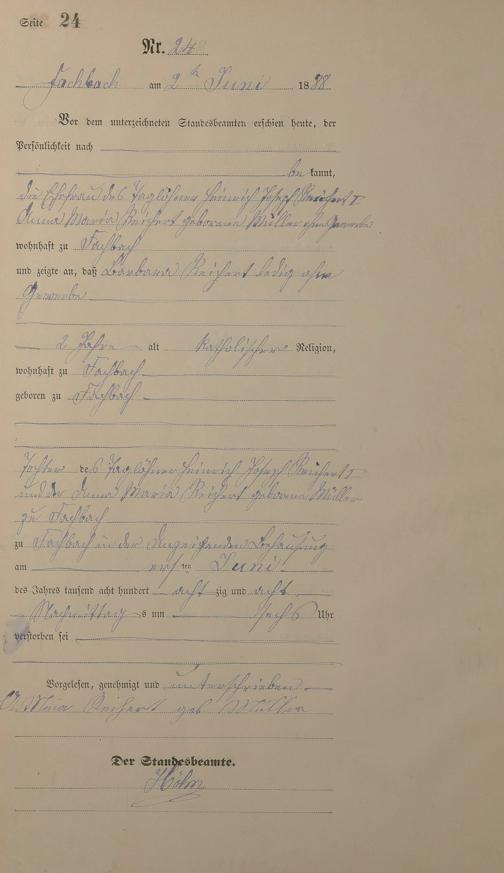 Seite 24
Nr. 24
Fachbach am 2ten Juni 1888
Vor dem unterzeichneten Standesbeamten erschien heute, der
Persönlichkeit nach
be kannt,
die Ehefrau des Taglöhners Heinrich Joseph Reichert I
Anna Maria Reichert geborene Müller ohne Gewerbe
wohnhaft zu Fachbach
und zeigte an, daß Barbara Reichert ledig ohne
Gewerbe
2 Jahre alt katholischer Religion,
wohnhaft zu Fachbach
geboren zu Fachbach
Tochter des Taglöhners Heinrich Joseph Reichert I
und der Anna Maria Reichert geborene Müller
zu Fachbach
zu Fachbach in der Behausung
am ersten Juni
des Jahres tausend acht hundert acht zig und acht
Nachmittags um sechs Uhr
verstorben sei
Vorgelesen, genehmigt und unterschrieben
Reichert geb Müller
Der Standesbeamte.